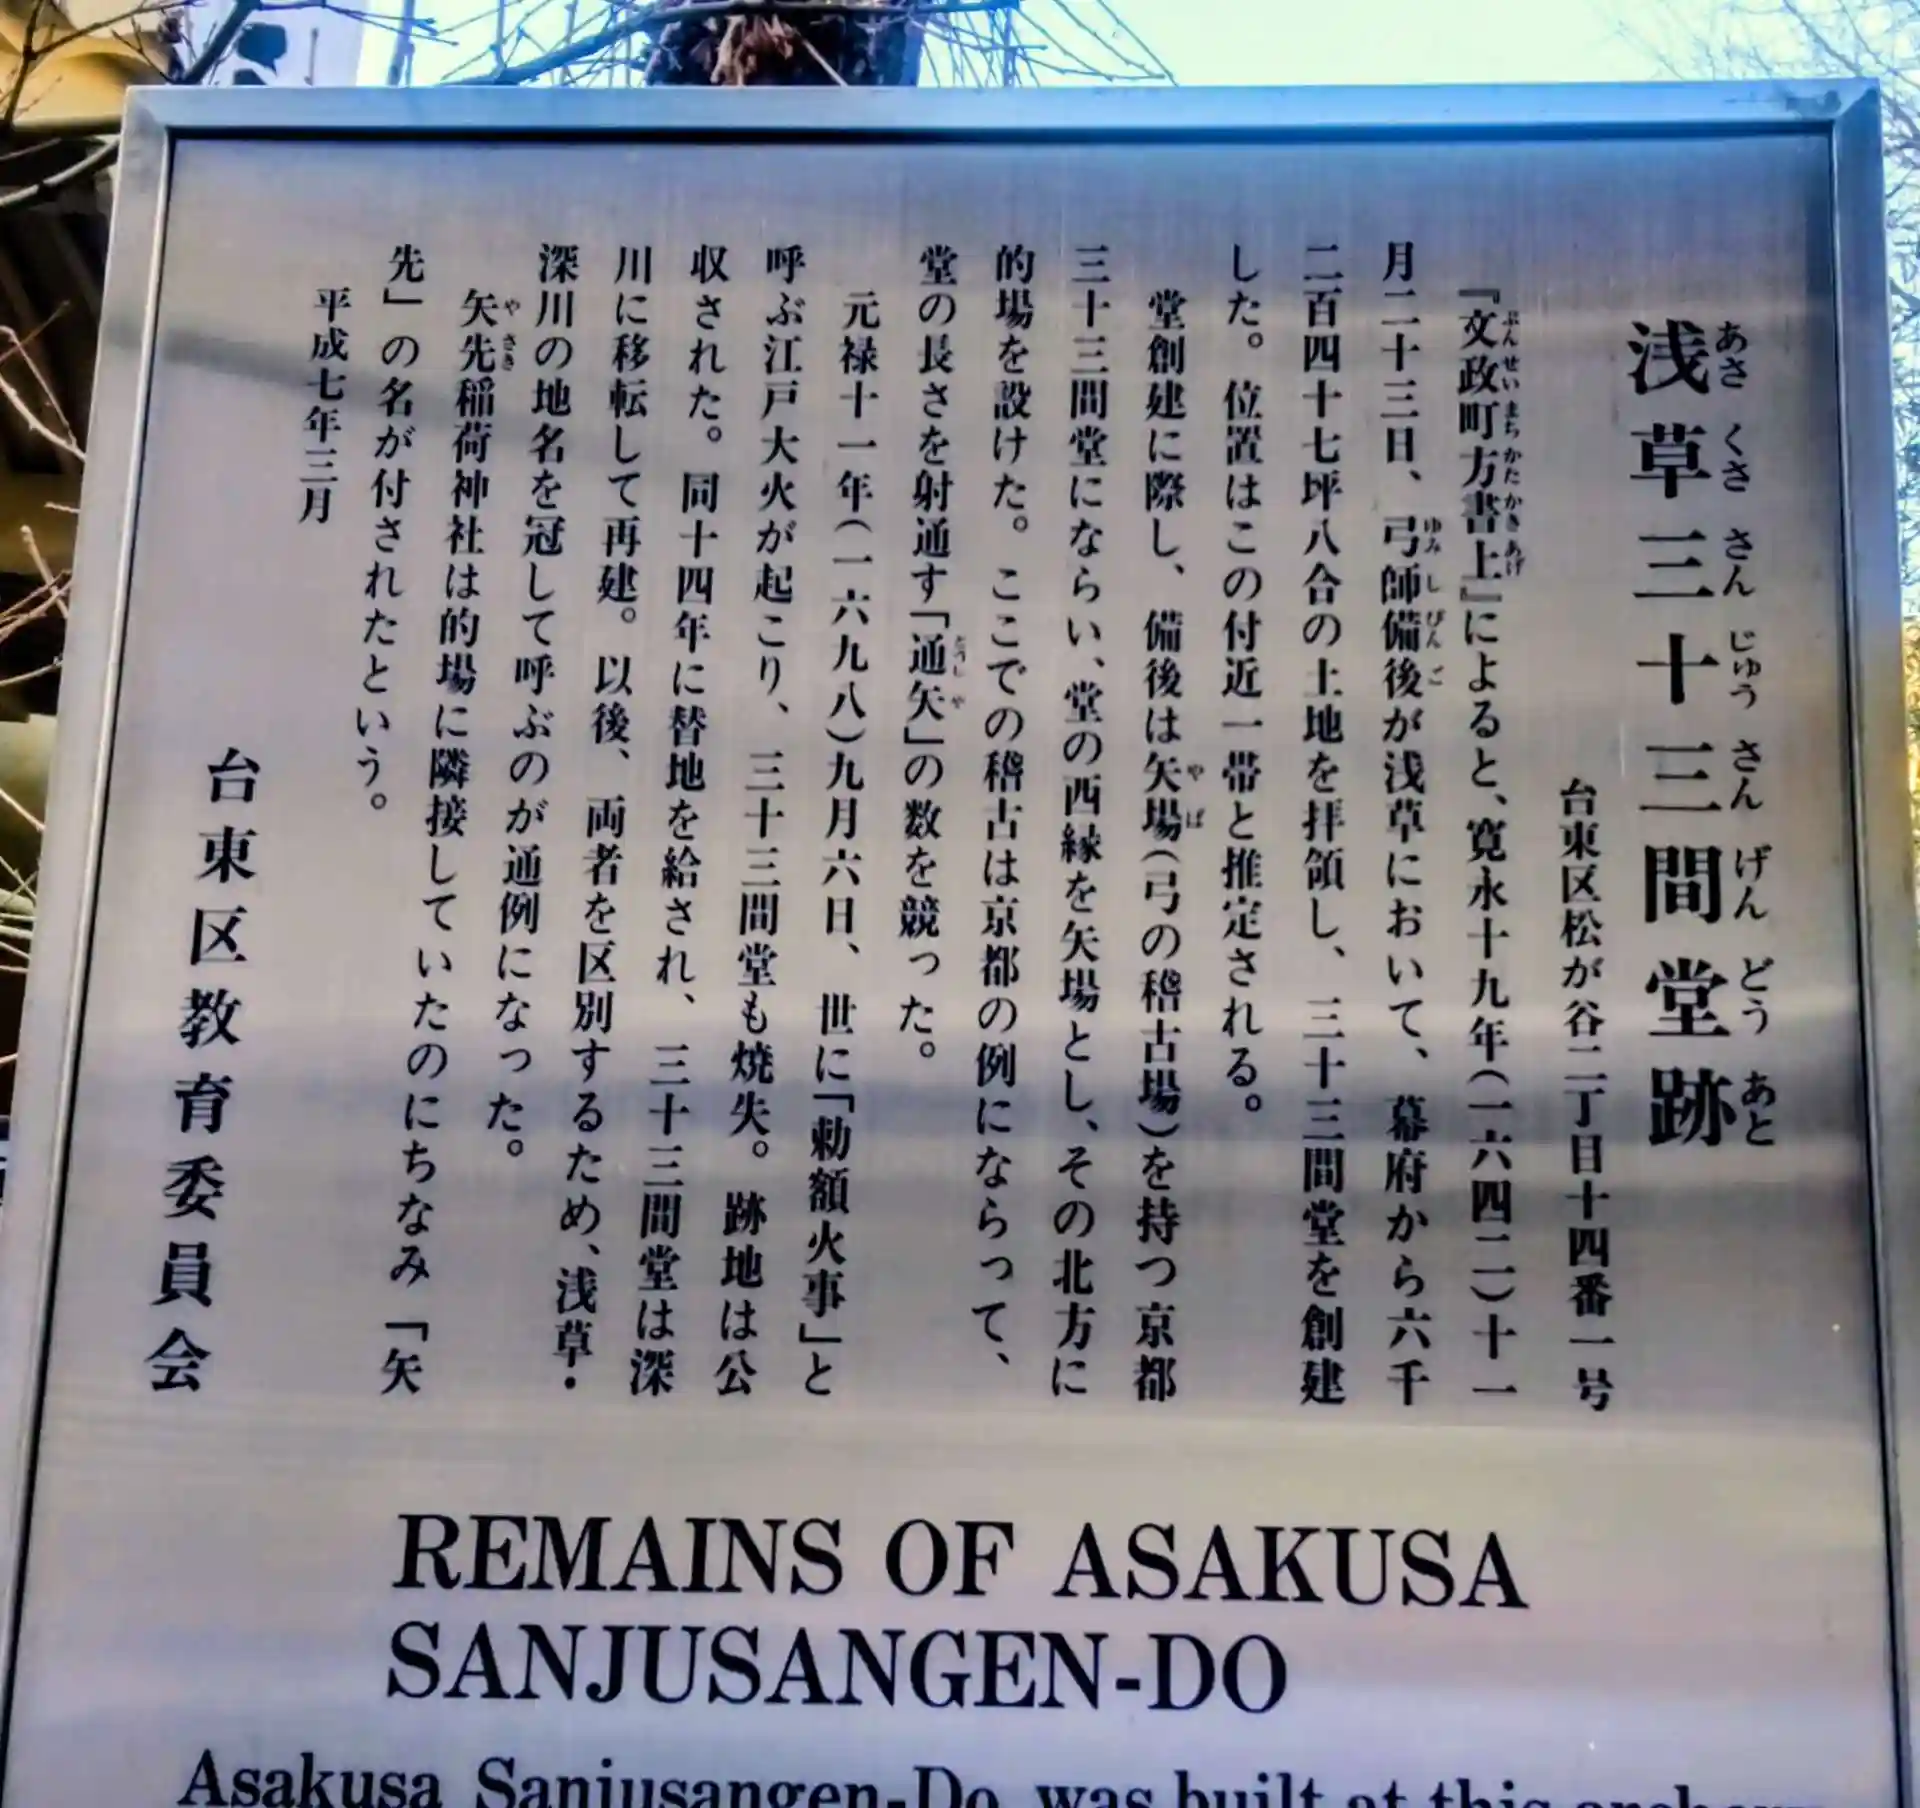 浅草三十三間堂跡
あさくささんじゅうさんげんどうあと
台東区松が谷二丁目十四番一号
『文政町方書上』によると、寛永十九年(一六四二)十一
ぶんせいまちかたかきあげ
月二十三日、弓師備後が浅草において、幕府から六千
ゆみしびんご
二百四十七坪八合の土地を拝領し、三十三間堂を創建
した。位置はこの付近一帯と推定される。
堂創建に際し、備後は矢場(弓の稽古場)を持つ京都
やば
三十三間堂にならい、堂の西縁を矢場とし、その北方に
的場を設けた。ここでの稽古は京都の例にならって、
堂の長さを射通す「通矢」の数を競った。
とうしや
元禄十一年(一六九八)九月六日、世に「勅額火事」と
呼ぶ江戸大火が起こり、三十三間堂も焼失。跡地は公
収された。同十四年に替地を給され、三十三間堂は深
川に移転して再建。以後、両者を区別するため、浅草・
深川の地名を冠して呼ぶのが通例になった。
矢先稲荷神社は的場に隣接していたのにちなみ「矢
やさき
先」の名が付されたという。
平成七年三月
台東区教育委員会
REMAINS OF ASAKUSA
SANJUSANGEN-DO
Asakusa Sanjusangen-Do was built at this archery